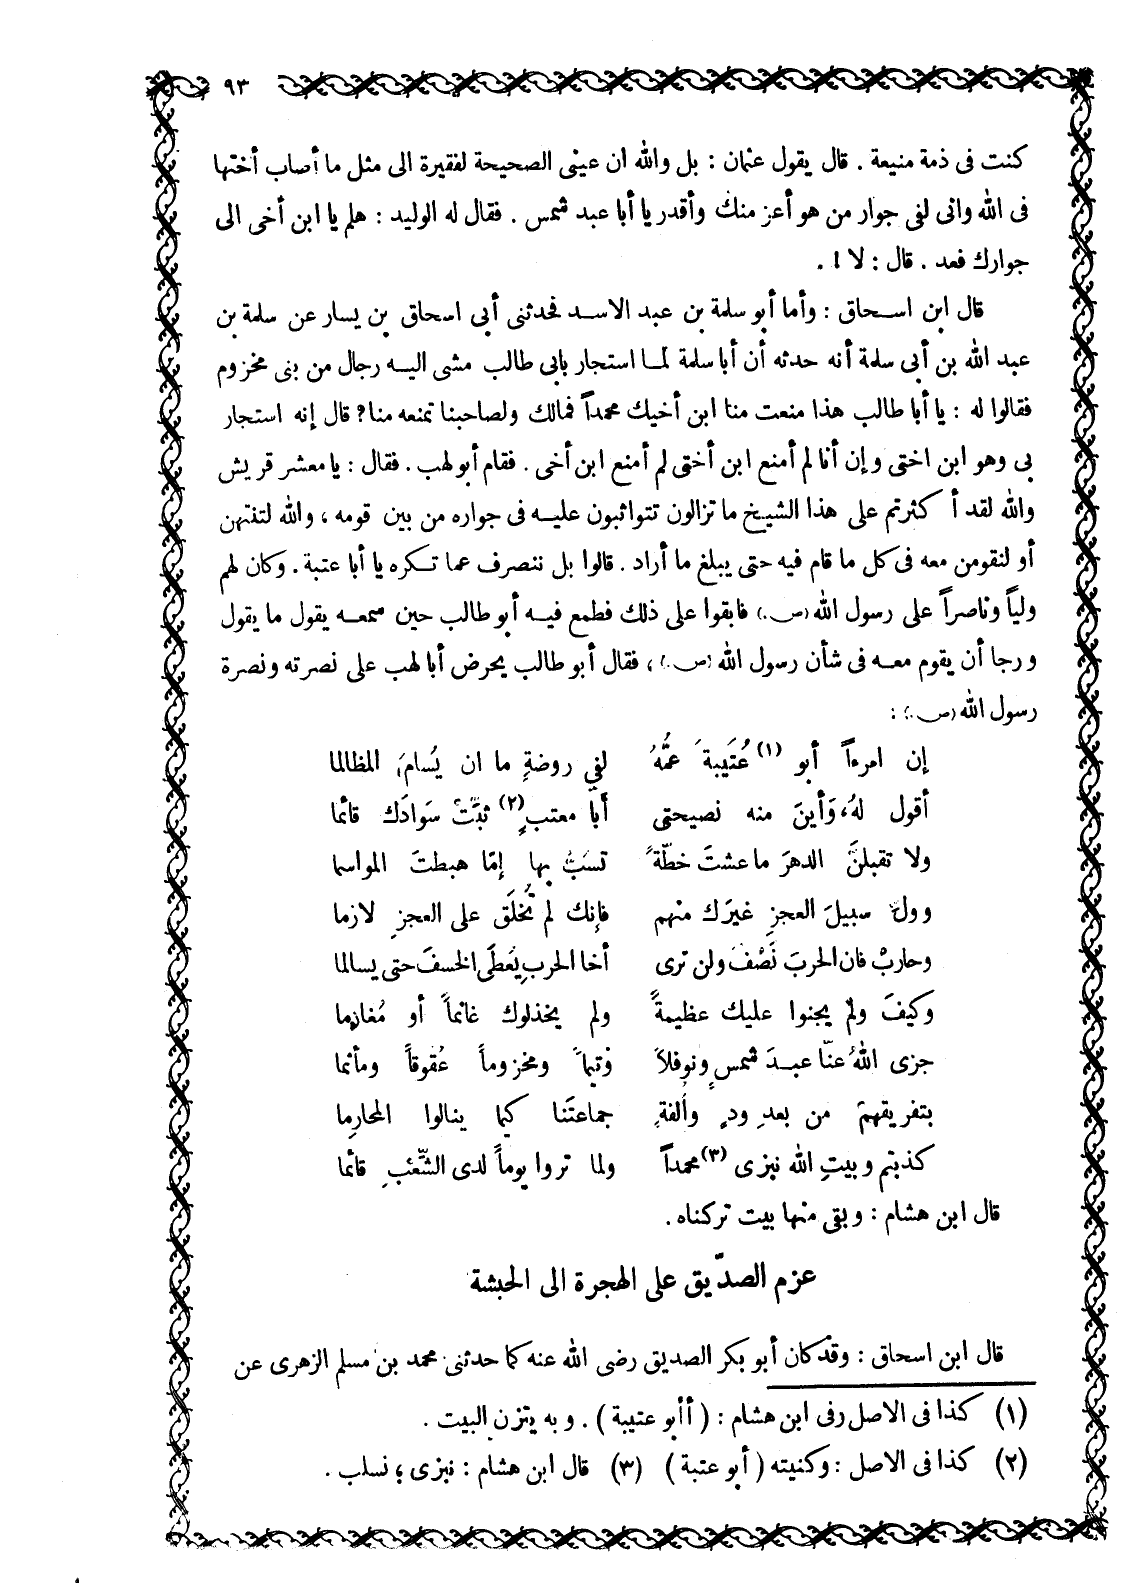 ٩٣
كنت فى ذمة منيعة . قال يقول عثمان : بل والله ان عينى الصحيحة لفقيرة الى مثل ما أصاب أختها
فى الله وانى لفى جوار من هو أعز منك وأقدر يا أبا عبد شمس . فقال له الوليد : هلم يا ابن أخى الى
جوارك فعد . قال : لا ! .
قال ابن اسحاق : وأما أبو سلمة بن عبد الاسد فحدثنى أبى اسحاق بن يسار عن سلمة بن
عبد الله بن أبى سلمة أنه حدثه أن أبا سلمة لما استجار بابى طالب مشى اليه رجال من بنى مخزوم
فقالوا له : يا أبا طالب هذا منعت منا ابن أخيك محمداً فمالك ولصاحبنا تمنعه منا ؟ قال إنه استجار
بى وهو ابن اختى وإن أنا لم أمنع ابن أختى لم أمنع ابن أخى . فقام أبو لهب . فقال : يا معشر قريش
والله لقد أكثرتم على هذا الشيخ ما تزالون تتواثبون عليه فى جواره من بين قومه ، والله لتنتهن
أو لنقومن معه فى كل ما قام فيه حتى يبلغ ما أراد . قالوا بل ننصرف عما تكره يا أبا عتبة . وكان لهم
ولياً وناصراً على رسول الله (ص.) فابقوا على ذلك فطمع فيه أبو طالب حين سمعه يقول ما يقول
ورجا أن يقوم معه فى شأن رسول الله (ص.) ، فقال أبو طالب يحرض أبا لهب على نصرته ونصرة
رسول الله (ص.) :
إن امرءاً أبو (١) عُتَيبةَ عمُّهُ لفي روضةٍ ما ان يُسامَ المظالما
أقول لهُ، وَأينَ منه نصيحتى أبا معتبٍ (٢) ثبّتْ سَوادَك قائما
ولا تقبلنَّ الدهرَ ما عشتَ خطّةً تسَبُّ بها إمّا هبطتَ المواسما
وولِّ سبيلَ العجزِ غيرَك منهم فإنك لم تُخلَق على العجزِ لازما
وحاربْ فان الحربَ نَصْفٌ ولن ترى أخا الحربِ يُعطَى الخسفَ حتى يسالما
وكيفَ ولمْ يجنوا عليك عظيمةً ولم يخذلوك غانماً أو مُغارِما
جزى اللهُ عنّا عبدَ شمسٍ ونوفلاً وتيماً ومخزوماً عُقوقاً ومأثما
بتفريقهمْ من بعدِ ودٍ وأُلفةٍ جماعتَنا كيما ينالوا المحارِما
كذبتم وبيتِ الله نبزى (٣) محمداً ولما تروا يوماً لدى الشِّعْبِ قائما
قال ابن هشام : وبقى منها بيت تركناه .
عزم الصدّيق على الهجرة الى الحبشة
قال ابن اسحاق : وقد كان أبو بكر الصديق رضى الله عنه كما حدثنى محمد بن مسلم الزهرى عن
(١) كذا فى الاصل رفى ابن هشام : ( أأبو عتيبة ) . وبه يتزن البيت .
(٢) كذا فى الاصل : وكنيته ( أبو عتبة ) (٣) قال ابن هشام : نبزى ؛ نسلب .